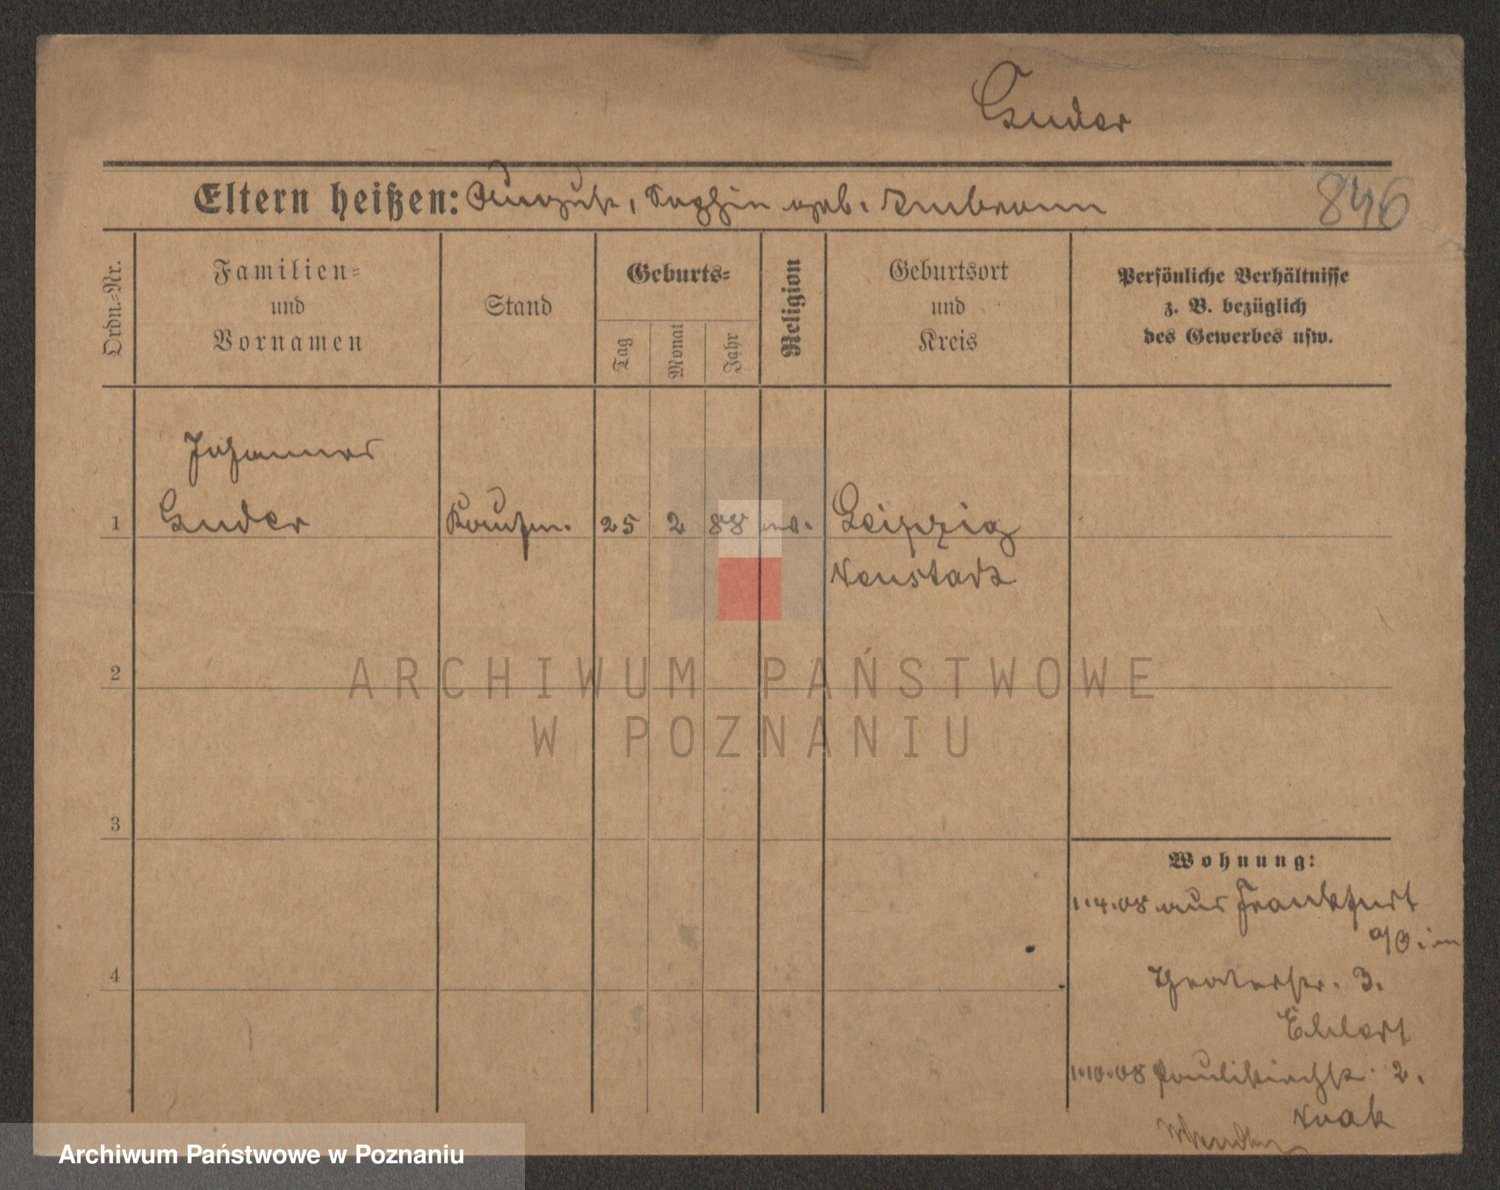 Guder
Eltern heißen: August, Sophie geb. Ambronn
846
Ordn.=Nr.
Familien=
und
Vornamen
Stand
Geburts=
Tag
Monat
Jahr
Religion
Geburtsort
und
Kreis
Persönliche Verhältnisse
z. B. bezüglich
des Gewerbes usw.
Johannes
1 Guder Kaufm. 25 2 88 Leipzig
Neustadt
2
ARCHIWUM PAŃSTWOWE
W POZNANIU
3
Wohnung:
1.4.08 aus Frankfurt
a/O. in
Theaterstr. 3.
Ehlert
1.10.08 Paulikirchstr. 2.
Noak
4
Archiwum Państwowe w Poznaniu